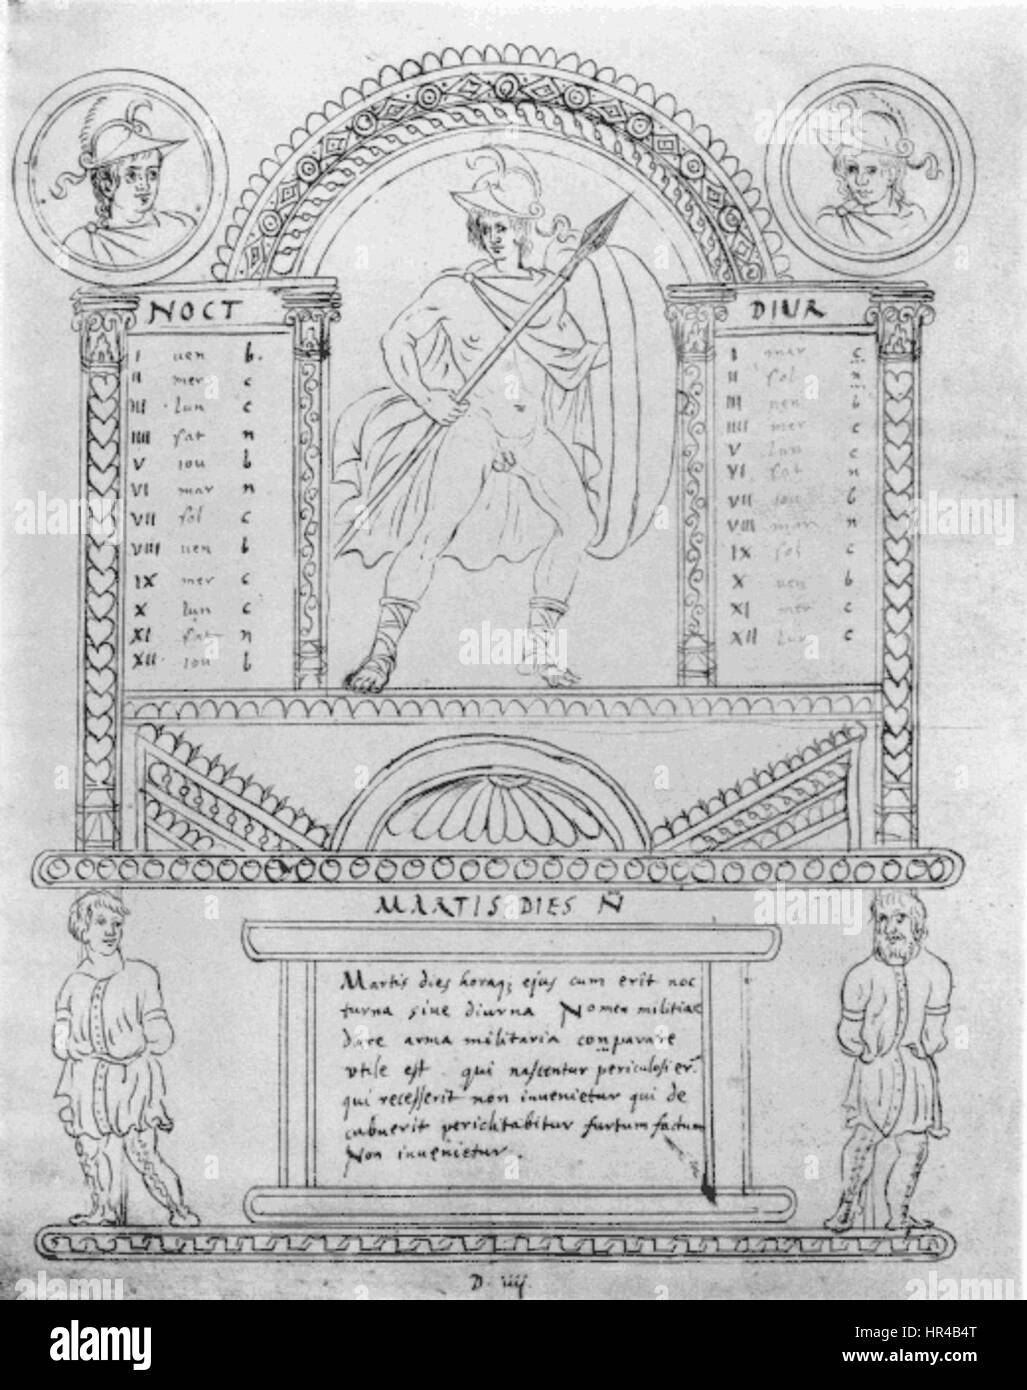 NOCT
I uen b.
II mer c
III lun c
IIII sat n
V iou b
VI mar n
VII sol c
VIII uen b
IX mer c
X lun c
XI sat n
XII iou b
DIUR
I mar
II sol
III uen b
IIII mer c
V lun c
VI sat n
VII iou b
VIII mar n
IX sol c
X uen b
XI mer c
XII lun c
MARTIS DIES Ñ
Martis dies horaq; ejus cum erit noc
turna siue diurna Nomen militiae
dare arma militaria comparare
utile est. qui nascentur periculosi er̃
qui recesserit non inuenietur qui de
cubuerit periclitabitur furtum factum
Non inuenietur.
D. iiij.
alamy
Image ID: HR4B4T
www.alamy.com